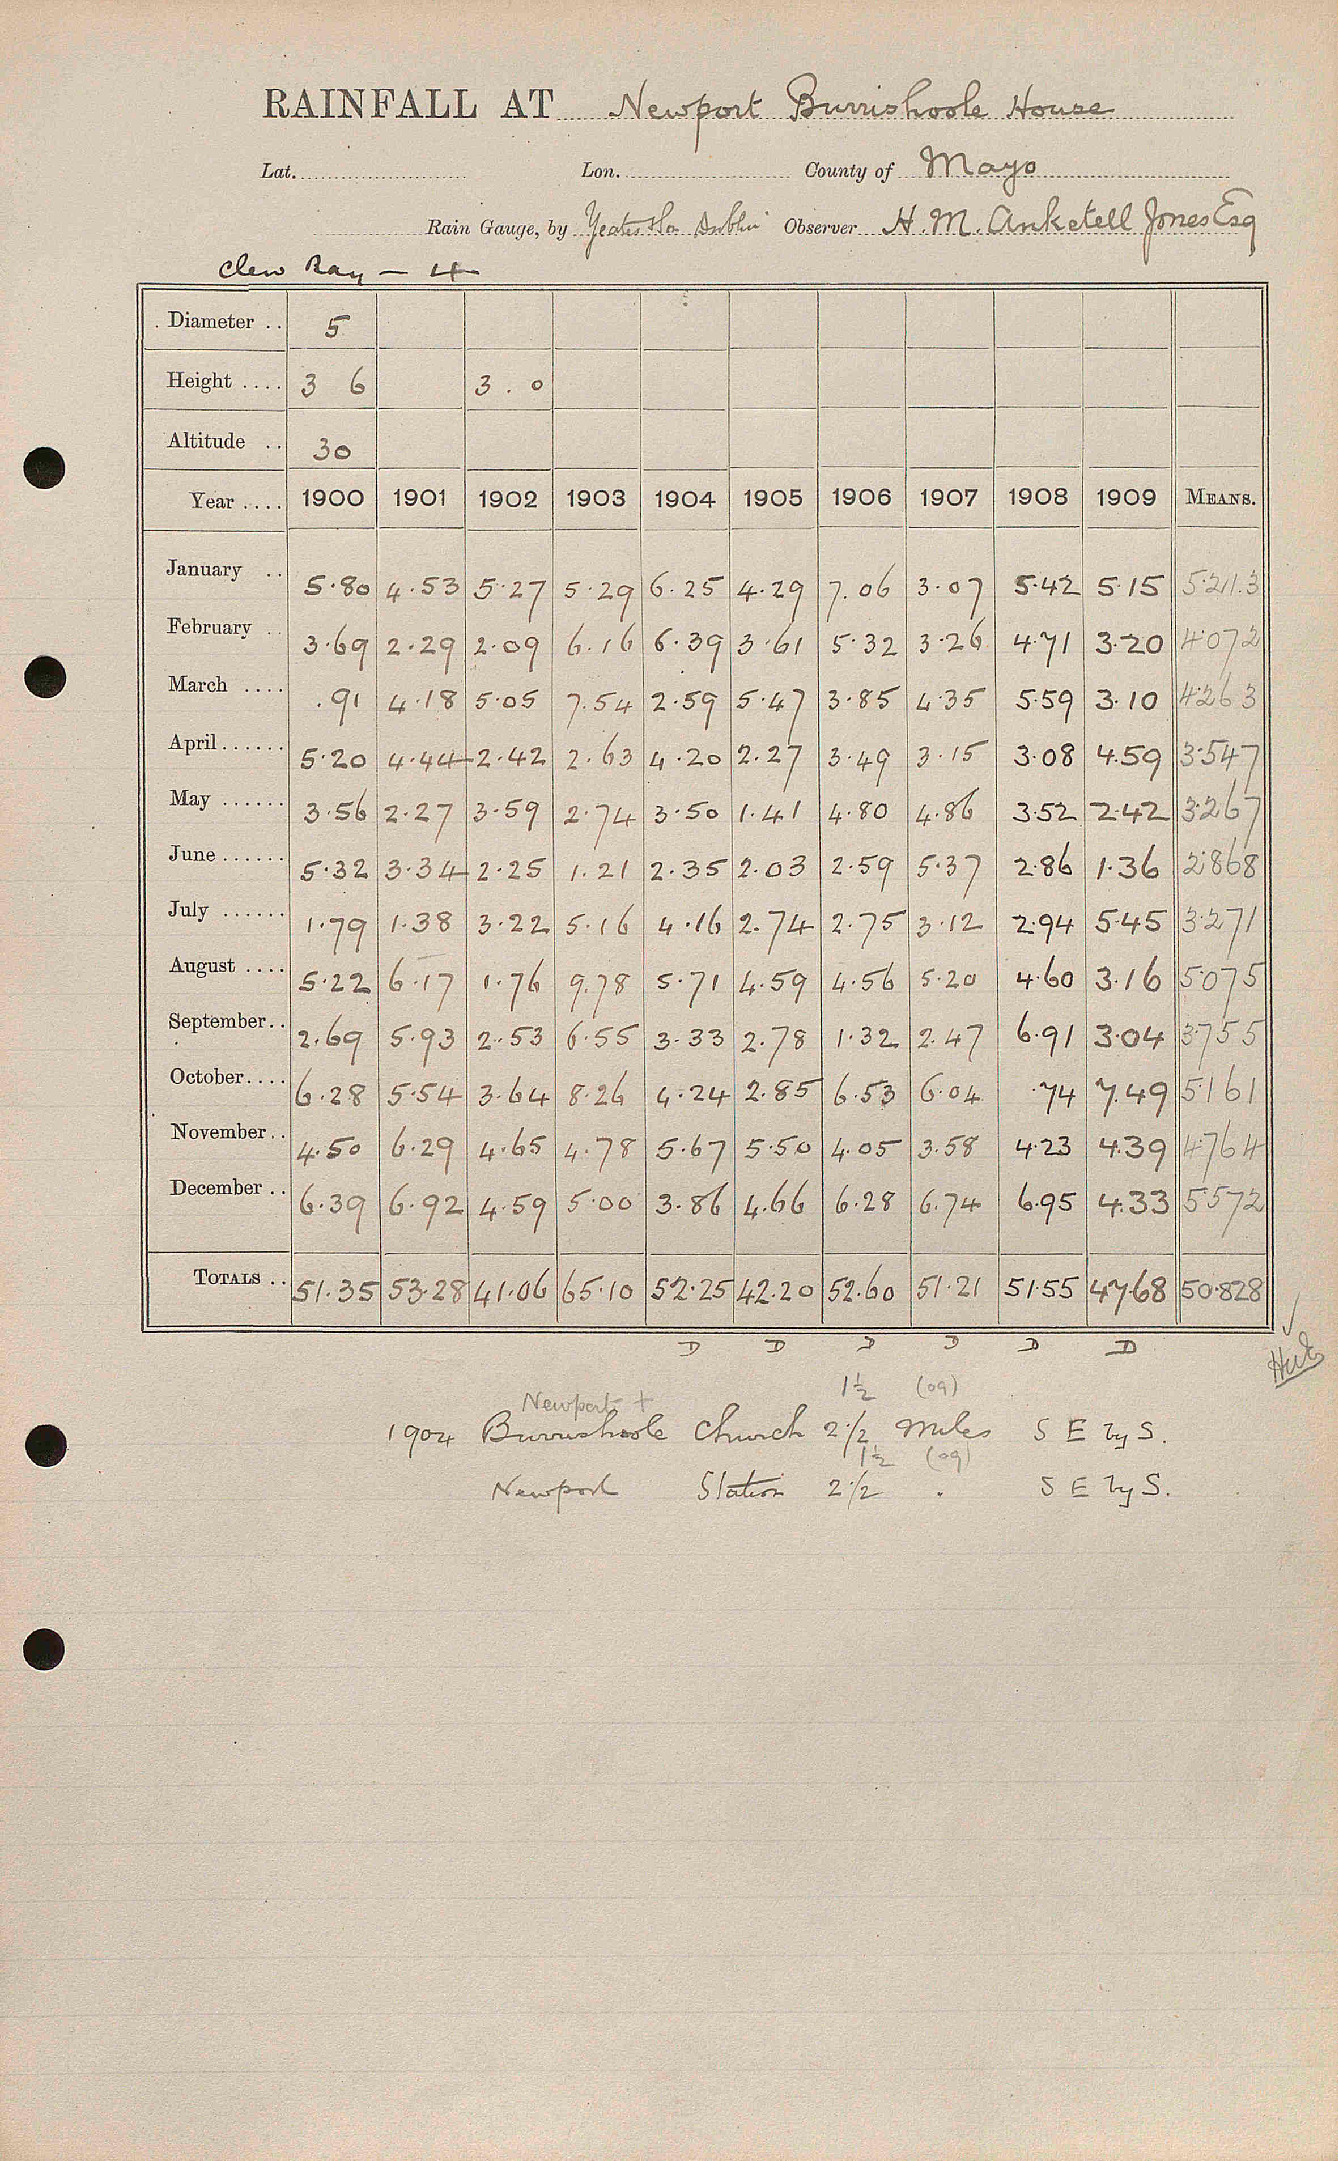 RAINFALL AT Newport Burrishoole House
Lat. Lon. County of Mayo
Rain Gauge, by Yeates & Son Dublin Observer H. M. Anketell Jones Esq
Clew Bay — 4
Diameter .. 5
Height .... 3 6 3 . 0
Altitude .. 30
Year .... 1900 1901 1902 1903 1904 1905 1906 1907 1908 1909 MEANS.
January .. 5.80 4.53 5.27 5.29 6.25 4.29 7.06 3.07 5.42 5.15 5.213
February .. 3.69 2.29 2.09 6.16 6.39 3.61 5.32 3.26 4.71 3.20 4.072
March .... .91 4.18 5.05 7.54 2.59 5.47 3.85 4.35 5.59 3.10 4.263
April ...... 5.20 4.44 2.42 2.63 4.20 2.27 3.49 3.15 3.08 4.59 3.547
May ...... 3.56 2.27 3.59 2.74 3.50 1.41 4.80 4.86 3.52 2.42 3.267
June ...... 5.32 3.34 2.25 1.21 2.35 2.03 2.59 5.37 2.86 1.36 2.868
July ...... 1.79 1.38 3.22 5.16 4.16 2.74 2.75 3.12 2.94 5.45 3.271
August .... 5.22 6.17 1.76 9.78 5.71 4.59 4.56 5.20 4.60 3.16 5.075
September.. 2.69 5.93 2.53 6.55 3.33 2.78 1.32 2.47 6.91 3.04 3755
October.... 6.28 5.54 3.64 8.26 4.24 2.85 6.53 6.04 .74 7.49 5161
November.. 4.50 6.29 4.65 4.78 5.67 5.50 4.05 3.58 4.23 4.39 4764
December .. 6.39 6.92 4.59 5.00 3.86 4.66 6.28 6.74 6.95 4.33 5572
TOTALS .. 51.35 53.28 41.06 65.10 52.25 42.20 52.60 51.21 51.55 47.68 50.828
D D D D D D
1½ (09)
Newport +
1904 Burrishoole Church 2½ miles S E by S.
1½ (09)
Newport Station 2½ . S E by S.